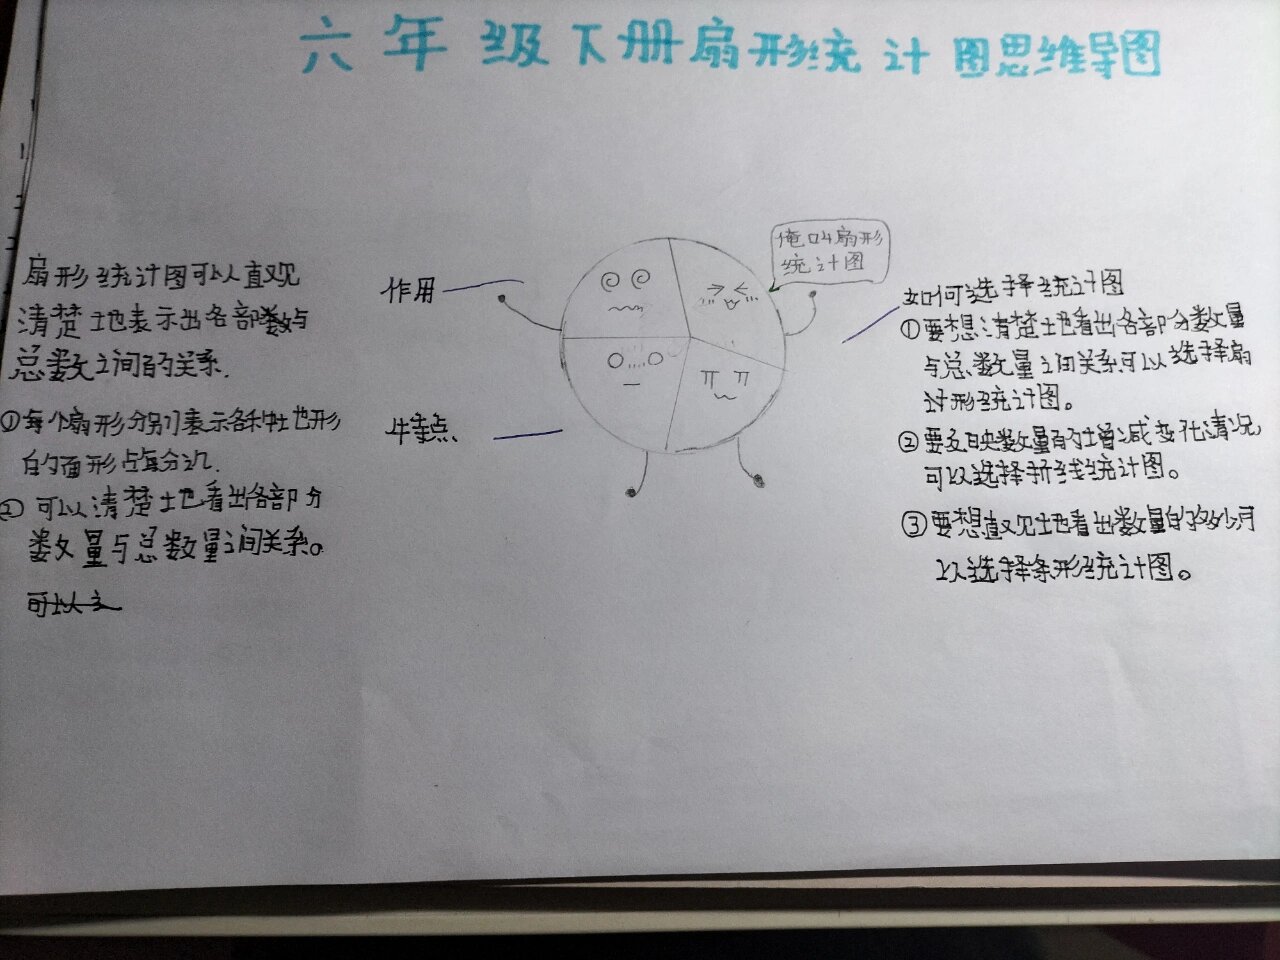 六年级下册扇形统计图思维导图
俺叫扇形
统计图
作用
扇形统计图可以直观
清楚地表示出各部数与
总数之间的关系.
特点
①每个扇形分别表示各种地形
的面形占每分几.
②可以清楚地看出各部分
数量与总数量之间关系。
可以
如何选择统计图
①要想清楚地看出各部分数量
与总数量之间关系可以选择扇
形统计图。
②要反映数量的增减变化情况
可以选择折线统计图。
③要想直观地看出数量的多少
以选择条形统计图。